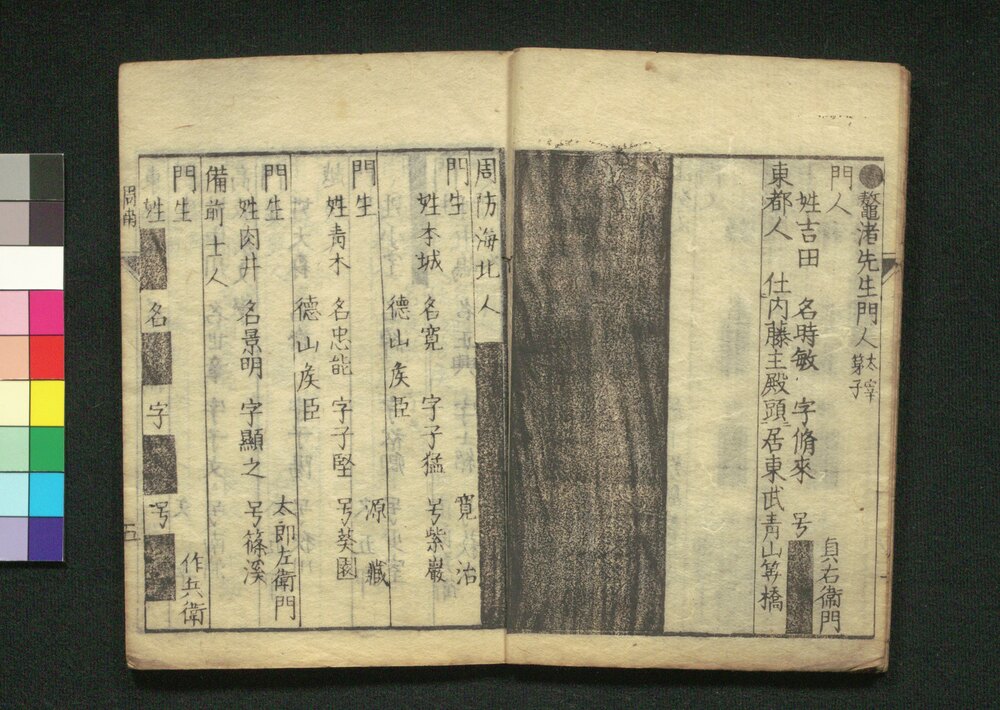 ●鼇渚先生門人 太宰弟子
門人 貞右衛門
姓吉田 名時敏 字脩來 号
東都人 仕内藤主殿頭居東武青山笄橋
周防海北人
門生 寛治
姓本城 名寛 字子猛 号紫巌
德山矦臣
門生 源藏
姓青木 名忠能 字子堅 号葵園
德山矦臣
門生 太郎左衛門
姓肉井 名景明 字顯之 号篠溪
備前士人
門生 作兵衛
姓 名 字 号
五